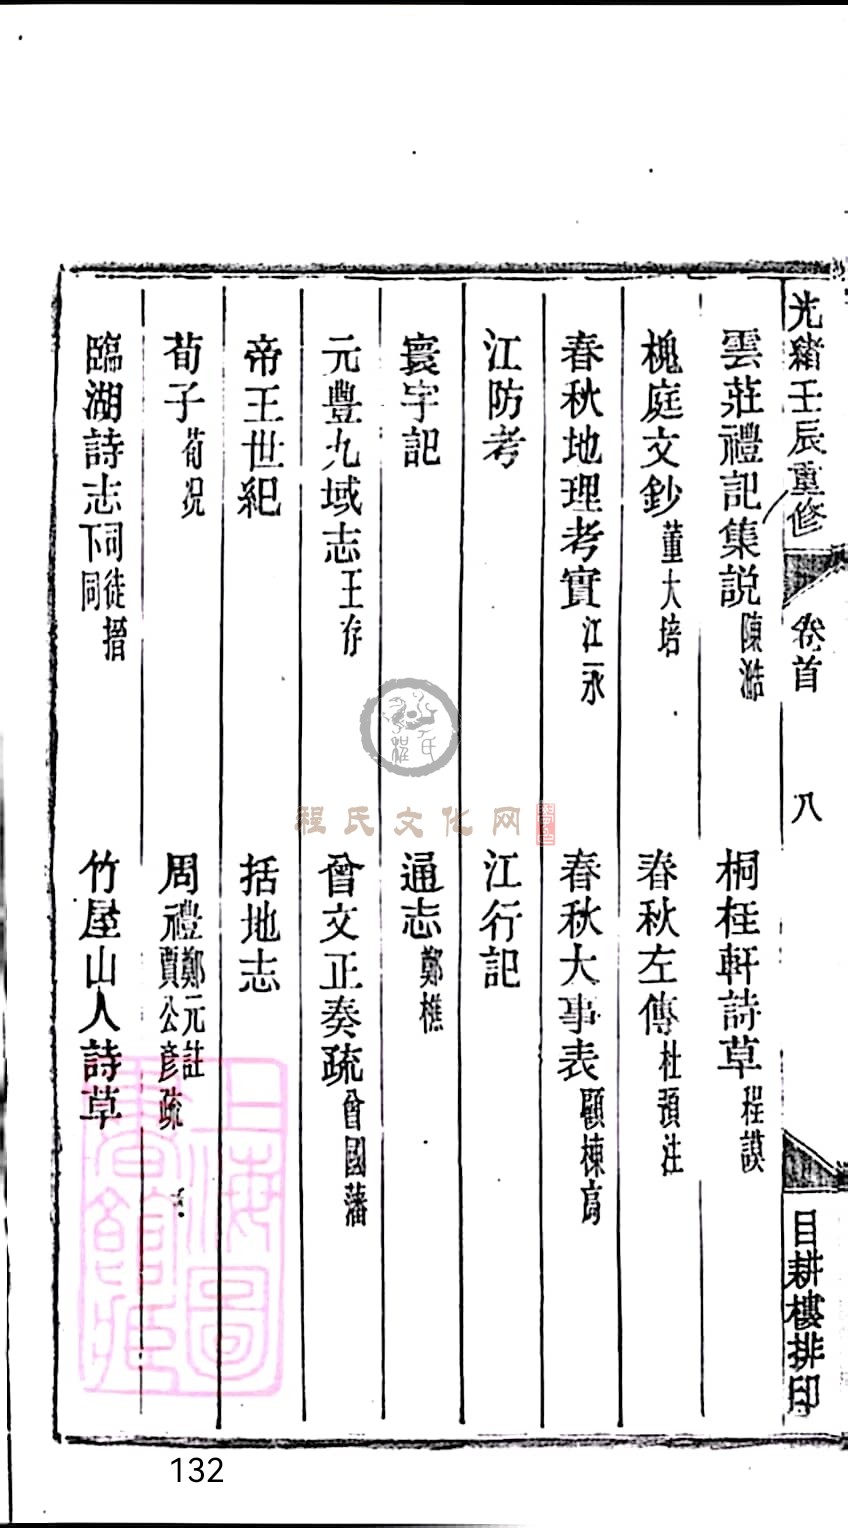 光緒壬辰重修
卷首
八
目耕樓排印
雲莊禮記集説 陳澔
桐桂軒詩草 程謨
槐庭文鈔 董大培
春秋左傳 杜預注
春秋地理考實 江永
春秋大事表 顧棟高
江防考
江行記
寰宇記
通志 鄭樵
元豐九域志 王存
曾文正奏疏 曾國藩
帝王世紀
括地志
荀子 荀况
周禮 鄭元註
賈公彦疏
臨湖詩志 司徒搢
下同
竹屋山人詩草
程氏
程氏文化网
上海圖書館藏
132